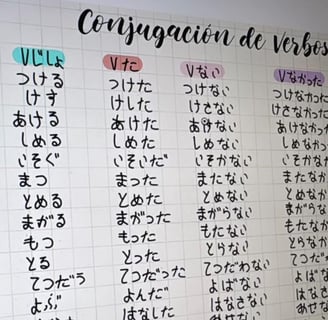 Conjugación de Verbos
Vじしょ Vた Vない Vなかった
つける つけた つけない つけなかった
けす けした けさない けさなかった
あける あけた あけない あけなかっ
しめる しめた しめない しめなかっ
いそぐ いそいだ いそがない いそがな
まつ まった またない またな
とめる とめた とめない とめなか
まがる まがった まがらない まがらな
もつ もった もたない もたな
とる とった とらない とらな
てつだう てつだった てつだわない てつだ
よぶ よんだ よばない よば
はなした はなさない はなさ